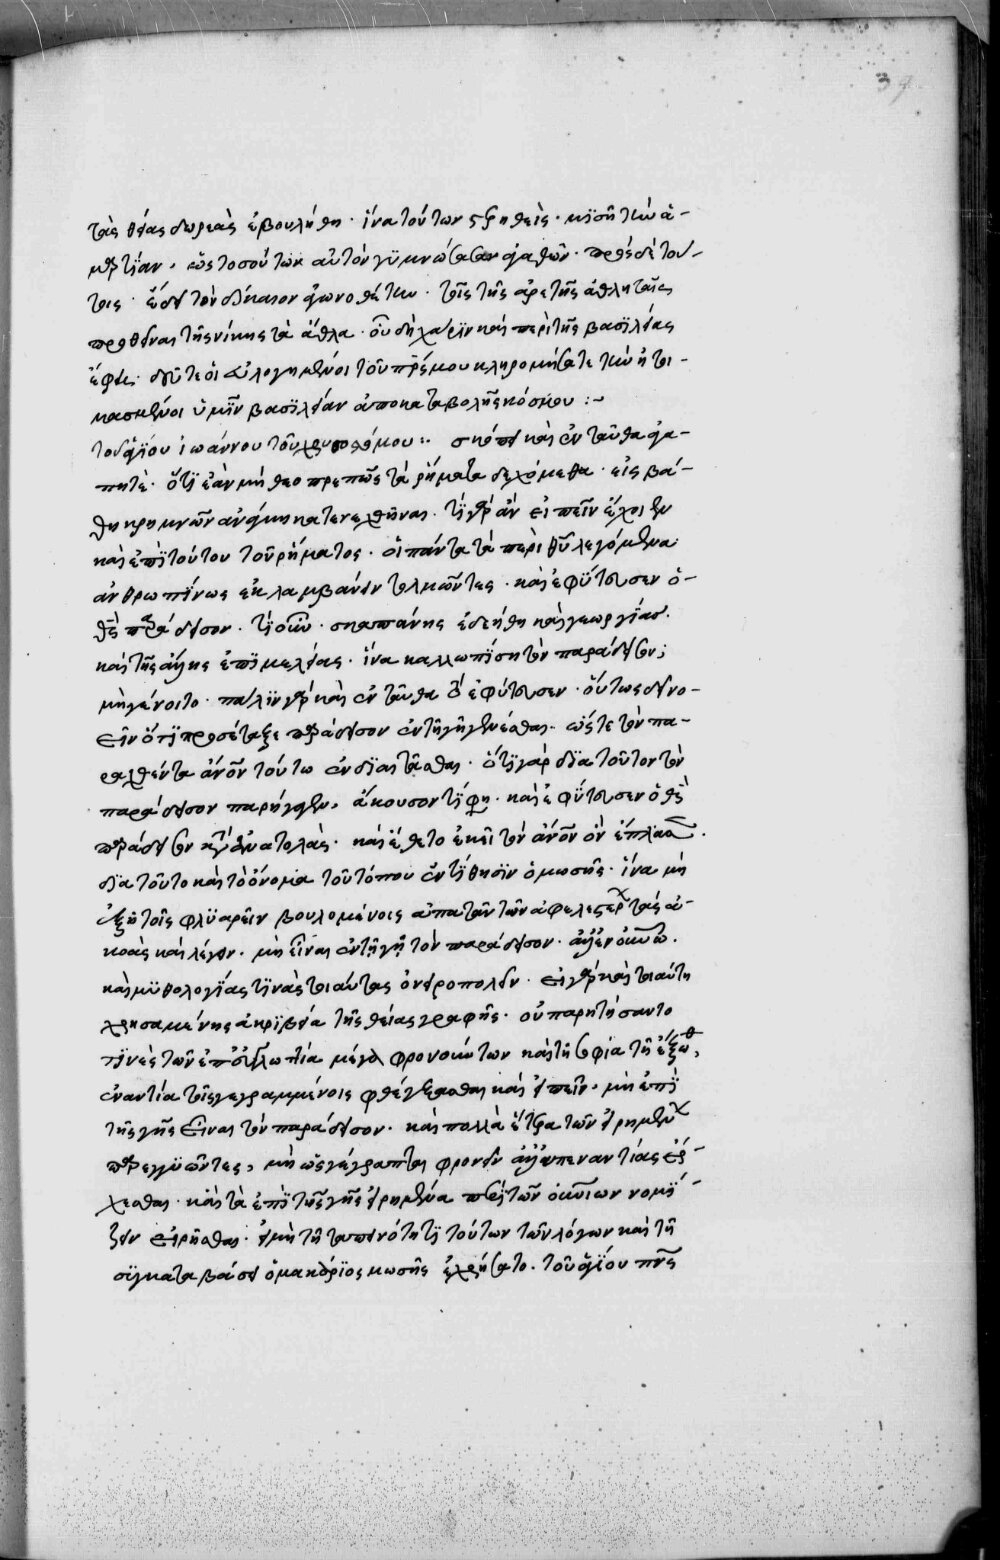 39
τὰς θείας δωρεὰς ἐβουλήθη · ἵνα τούτων στερηθεὶς · μισῆ τὴν ἁ-
μαρτίαν, ὡς τοσούτων αὐτὸν γυμνώσασαν ἀγαθῶν · πρὸς δὲ τού-
τοις · ἔδει τὸν δίκαιον ἀγωνοθέτην · τοῖς τῆς ἀρετῆς ἀθληταῖς
προθεῖναι τῆς νίκης τὰ ἆθλα · οὗ δὴ χάριν καὶ περὶ τῆς βασιλείας
ἔφη · δεῦτε οἱ εὐλογημένοι τοῦ πρς μου κληρομήσατε τὴν ἡτοι-
μασμένοι ὑμῖν βασιλείαν ἀπὸ καταβολῆς κόσμου :~
τοῦ ἁγίου ἰωάννου τοῦ χρυσοστόμου :· σκόπει καὶ ἐνταῦθα ἀγα-
πητὲ · ὅτι ἐὰν μὴ θεοπρεπῶς τὰ ῥήματα δεχόμεθα · εἰς βά-
θη κρημνῶν ἀνάγκη κατενεχθῆναι · τί γὰρ ἂν εἰπεῖν ἔχοιεν
καὶ ἐπὶ τούτου τοῦ ῥήματος · οἱ πάντα τὰ περὶ θυ λεγόμενα
ἀνθρωπίνως ἐκλαμβάνειν τολμῶντες · καὶ ἐφύτευσεν ὁ
θς παράδεισον · τί οὖν · σκαπάνης ἐδεήθη καὶ γεωργίας
καὶ τῆς ἄλλης ἐπιμελείας · ἵνα καλλωπίση τὸν παράδεισον;
μὴ γένοιτο · πάλιν γὰρ καὶ ἐνταῦθα τὸ ἐφύτευσεν · οὕτως δεῖ νο-
εῖν ὅτι προσέταξε παράδεισον ἐν τῆ γῆ γενέσθαι · ὥστε τὸν πα-
ραχθέντα ἀνον τούτω ἐνδιαιτᾶσθαι · ὅτι γὰρ δια τοῦτον τὸν
παράδεισον παρήγαγεν, ἄκουσον τί φη · καὶ ἐφύτευσεν ὁ θς
παράδεισον κατὰ ἀνατολὰς · καὶ ἔθετο ἐκεῖ τὸν ἀνον ὃν ἔπλασε ·
δια τοῦτο καὶ τὸ ὄνομα τοῦ τόπου ἐντίθησιν ὁ μωσῆς · ἵνα μὴ
ἐξῆ τοῖς φλυαρεῖν βουλομένοις ἀπατᾶν τῶν ἀφελεστέρων τὰς ἀ-
κοὰς καὶ λέγειν · μὴ εἶναι ἐν τῆ γῆ τὸν παράδεισον · ἀλλ' ἐν οὐνῶ ·
καὶ μυθολογίας τινὰς τοιαύτας ὀνειροπολεῖν · εἰ γὰρ καὶ τοιαύτη
χρησαμένης ἀκριβεία τῆς θείας γραφῆς · οὐ παρητήσαντο
τινὲς τῶν ἐπ' εὐγλωττία μέγα φρονούντων καὶ τῆ σοφία τῆ ἔξωθ,
ἐναντία τοῖς γεγραμμένοις φθέγξασθαι καὶ εἰπεῖν · μὴ ἐπὶ
τῆς γῆς εἶναι τὸν παράδεισον · καὶ πολλὰ ἕτερα τῶν εἰρημένων
παρεγγυῶντες, μὴ ὡς γέγραπται φρονεῖν ἀλλ' ἀπεναντίας ἔρ-
χεσθαι · καὶ τὰ ἐπὶ τῆς γῆς εἰρημένα περὶ τῶν οὐνίων νομί-
ζειν εἰρῆσθαι · εἰ μὴ τῆ ταπεινότητι τούτων τῶν λόγων καὶ τῆ
συγκαταβάσει ὁ μακάριος μωσῆς ἐχρήσατο · τοῦ ἁγίου πνς